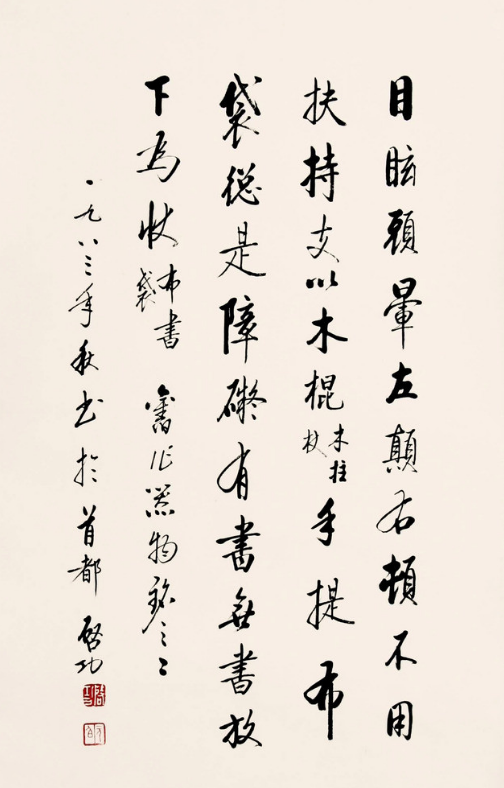 目眩頭暈左顛右頓不用
扶持支以木棍木拄杖手提布
袋總是障礙有書無書放
下為快布書袋 舊作器物銘之二
一九八三年秋书於首都 啓功
啓功
元白